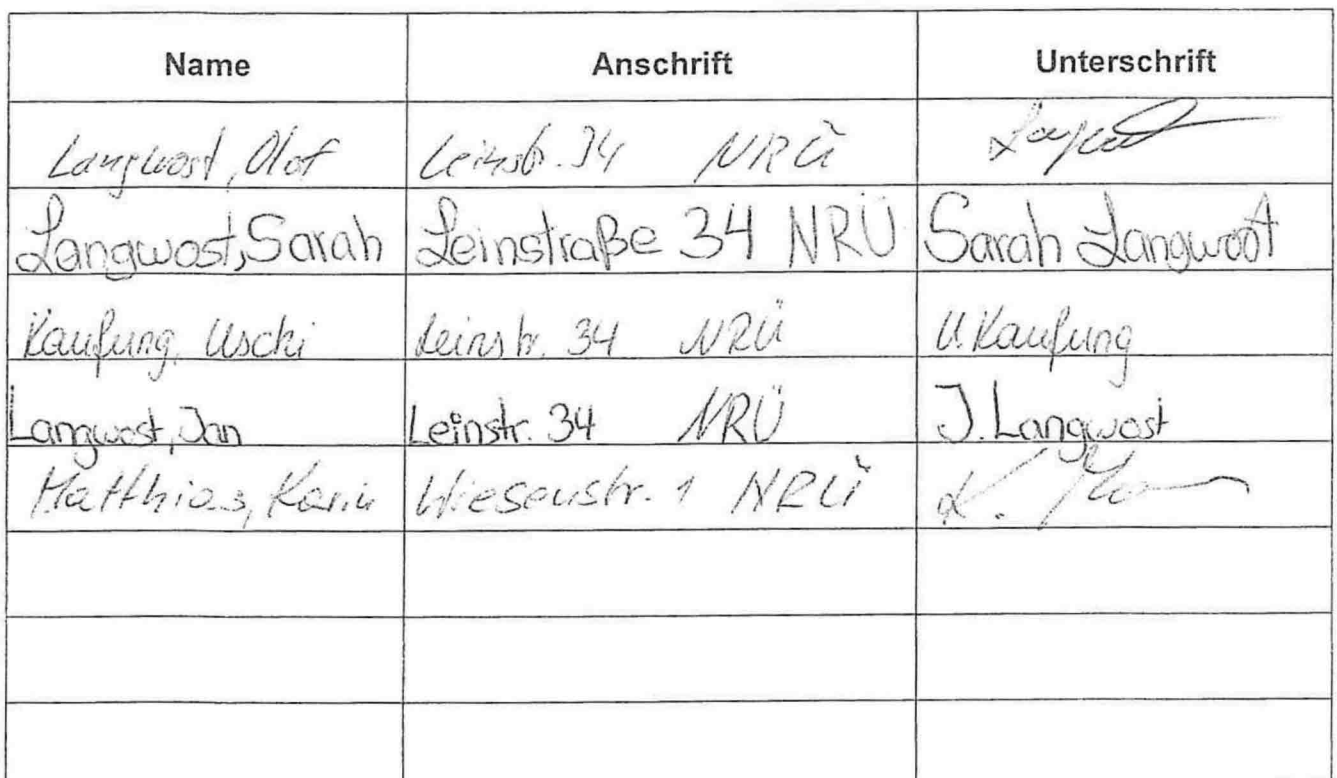 Name Anschrift Unterschrift
Langwost, Olof Leinstr. 34 NRÜ
Langwost, Sarah Leinstraße 34 NRÜ Sarah Langwost
Kaufung, Uschi Leinstr. 34 NRÜ U. Kaufung
Langwost, Jan Leinstr. 34 NRÜ J. Langwost
Matthias, Karin Wiesenstr. 1 NRÜ K.